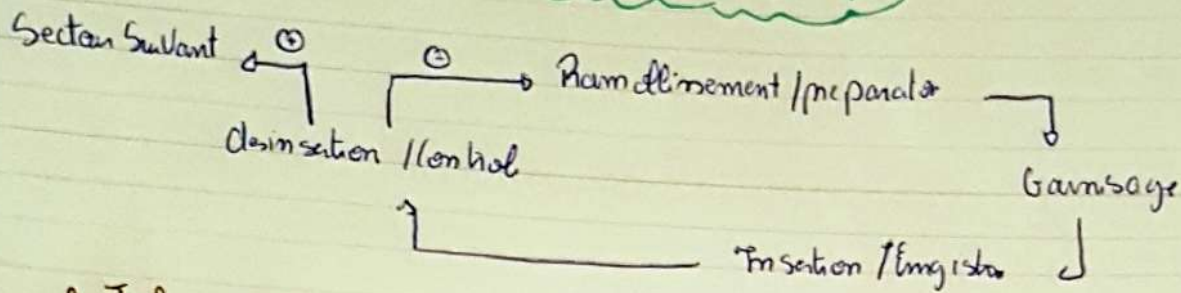 Secteur Suivant ⊕
⊖ Ramollissement / preparat°
desinsertion / Control
Garnisage
Insertion / Enregistr